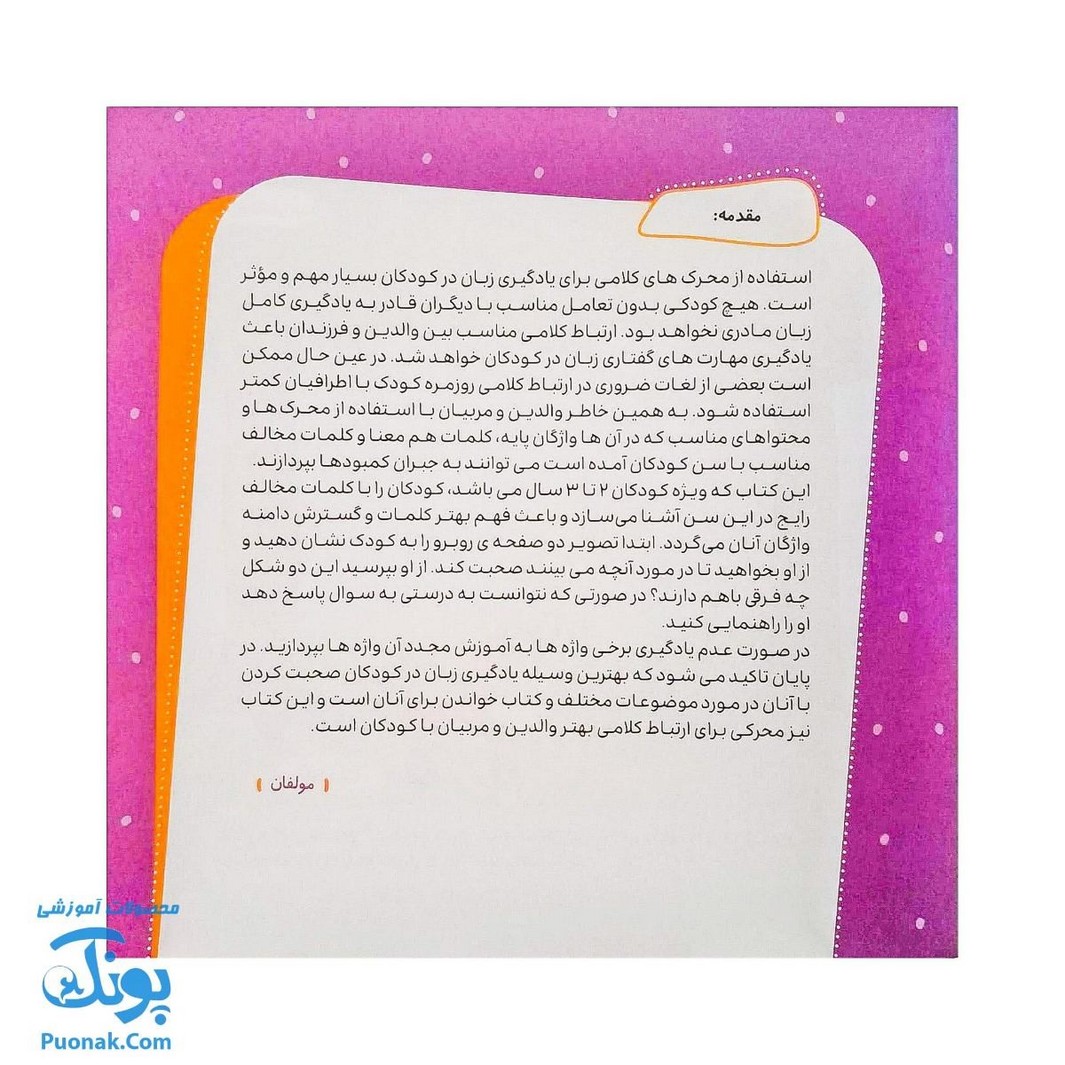 مقدمه:
استفاده از محرک های کلامی برای یادگیری زبان در کودکان بسیار مهم و مؤثر
است. هیچ کودکی بدون تعامل مناسب با دیگران قادر به یادگیری کامل
زبان مادری نخواهد بود. ارتباط کلامی مناسب بین والدین و فرزندان باعث
یادگیری مهارت های گفتاری زبان در کودکان خواهد شد. در عین حال ممکن
است بعضی از لغات ضروری در ارتباط کلامی روزمره کودک با اطرافیان کمتر
استفاده شود. به همین خاطر والدین و مربیان با استفاده از محرک ها و
محتواهای مناسب که در آن ها واژگان پایه، کلمات هم معنا و کلمات مخالف
مناسب با سن کودکان آمده است می توانند به جبران کمبودها بپردازند.
این کتاب که ویژه کودکان ۲ تا ۳ سال می باشد، کودکان را با کلمات مخالف
رایج در این سن آشنا می‌سازد و باعث فهم بهتر کلمات و گسترش دامنه
واژگان آنان می‌گردد. ابتدا تصویر دو صفحه ی روبرو را به کودک نشان دهید و
از او بخواهید تا در مورد آنچه می بینند صحبت کند. از او بپرسید این دو شکل
چه فرقی باهم دارند؟ در صورتی که نتوانست به درستی به سوال پاسخ دهد
او را راهنمایی کنید.
در صورت عدم یادگیری برخی واژه ها به آموزش مجدد آن واژه ها بپردازید. در
پایان تاکید می شود که بهترین وسیله یادگیری زبان در کودکان صحبت کردن
با آنان در مورد موضوعات مختلف و کتاب خواندن برای آنان است و این کتاب
نیز محرکی برای ارتباط کلامی بهتر والدین و مربیان با کودکان است.
( مولفان )
محصولات آموزشی
پونک
Puonak.Com